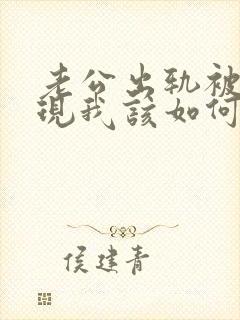 老公出轨被
现我该如何
侯建青